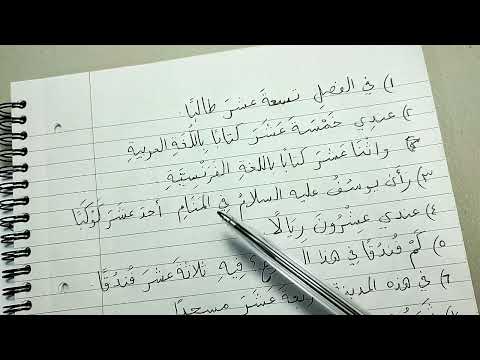 ١) في الفصلِ تسعةَ عشَرَ طالبًا.
٢) عندِي خَمْسَةَ عَشَرَ كتابًا بِاللُّغَةِ العربيةِ
وَاثْنَا عَشَرَ كتابًا باللغةِ الفَرَنْسِيَّةِ
٣) رأى يوسُفُ عليه السلامُ في المَنَامِ أحدَ عَشَرَ كَوْكَبًا
٤) عندي عِشْرُونَ رِيَالًا.
٥) كَمْ فُنْدُقًا في هذا فِيهِ ثلاثةَ عَشَرَ فُنْدُقًا
٦) في هذه المدينةِ عَشَرَ مسجدًا